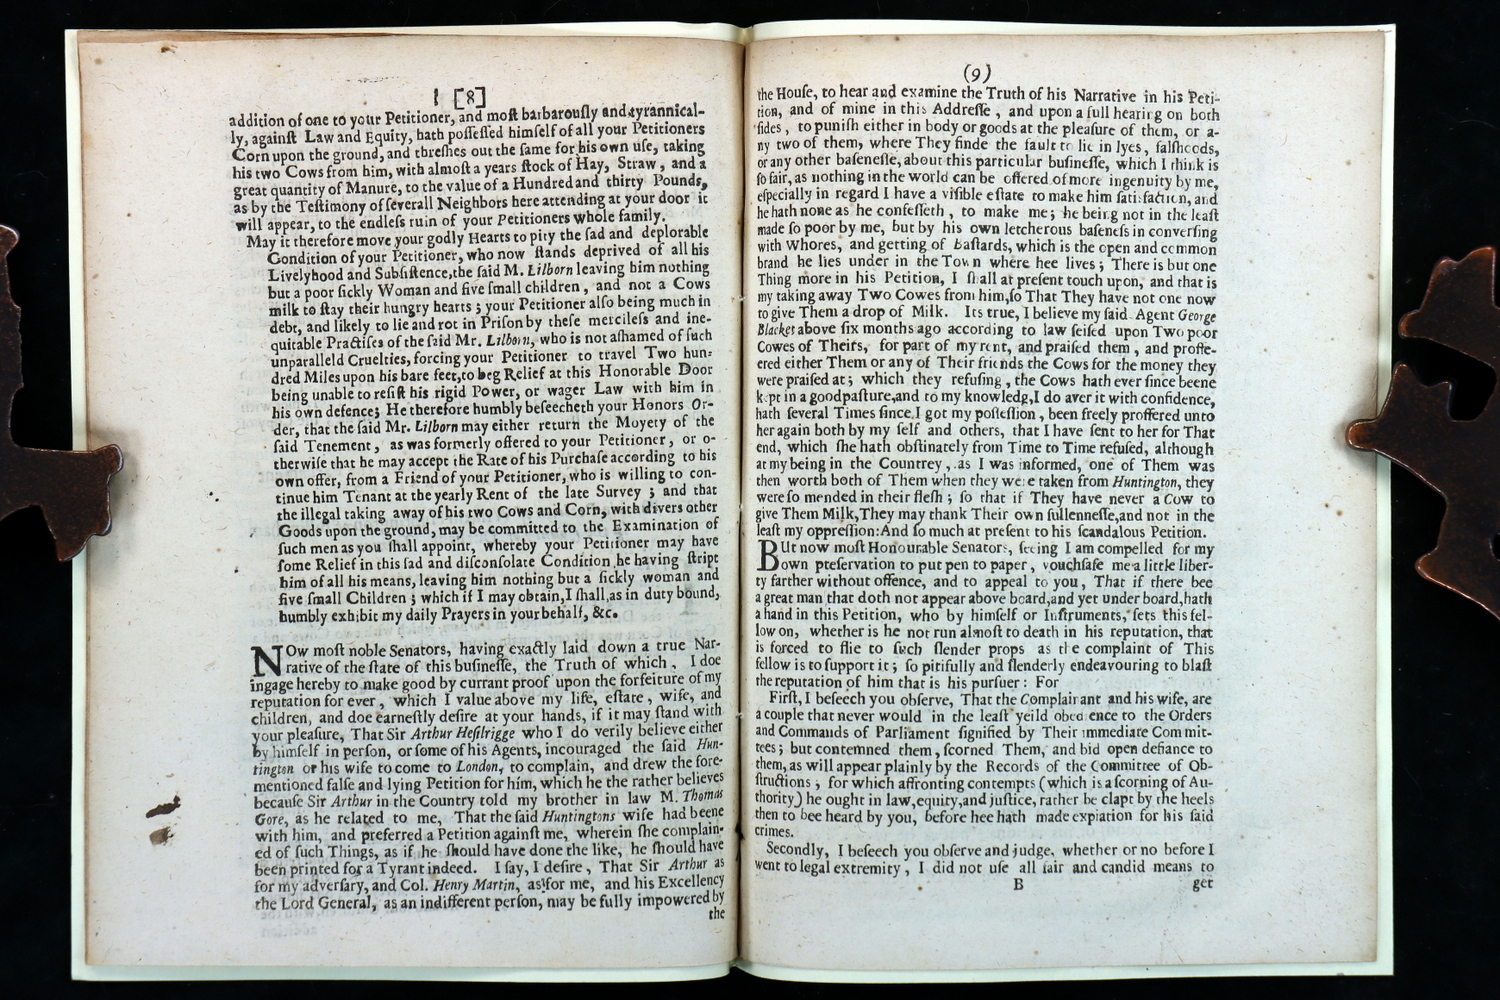 [8]
addition of one to your Petitioner, and most barbarously and tyrannical-
ly, against Law and Equity, hath possessed himself of all your Petitioners
Corn upon the ground, and threshes out the same for his own use, taking
his two Cows from him, with almost a years stock of Hay, Straw, and a
great quantity of Manure, to the value of a Hundred and thirty Pounds,
as by the Testimony of severall Neighbors here attending at your door it
will appear, to the endless ruin of your Petitioners whole family.
May it therefore move your godly Hearts to pity the sad and deplorable
Condition of your Petitioner, who now stands deprived of all his
Livelyhood and Subsistence, the said M. Lilborn leaving him nothing
but a poor sickly Woman and five small children, and not a Cows
milk to stay their hungry hearts; your Petitioner also being much in
debt, and likely to lie and rot in Prison by these merciless and ine-
quitable Practises of the said Mr. Lilborn, who is not ashamed of such
unparalleld Cruelties, forcing your Petitioner to travel Two hun-
dred Miles upon his bare feet, to beg Relief at this Honorable Door
being unable to resist his rigid Power, or wager Law with him in
his own defence; He therefore humbly beseecheth your Honors Or-
der, that the said Mr. Lilborn may either return the Moyety of the
said Tenement, as was formerly offered to your Petitioner, or o-
therwise that he may accept the Rate of his Purchase according to his
own offer, from a Friend of your Petitioner, who is willing to con-
tinue him Tenant at the yearly Rent of the late Survey; and that
the illegal taking away of his two Cows and Corn, with divers other
Goods upon the ground, may be committed to the Examination of
such men as you shall appoint, whereby your Petitioner may have
some Relief in this sad and disconsolate Condition he having stript
him of all his means, leaving him nothing but a sickly woman and
five small Children; which if I may obtain, I shall, as in duty bound,
humbly exhibit my daily Prayers in your behalf, &c.
NOw most noble Senators, having exactly laid down a true Nar-
rative of the state of this businesse, the Truth of which, I doe
ingage hereby to make good by currant proof upon the forfeiture of my
reputation for ever, which I value above my life, estate, wife, and
children, and doe earnestly desire at your hands, if it may stand with
your pleasure, That Sir Arthur Hesilrigge who I do verily believe either
by himself in person, or some of his Agents, incouraged the said Hun-
tington or his wife to come to London, to complain, and drew the fore-
mentioned false and lying Petition for him, which he the rather believes
because Sir Arthur in the Country told my brother in law M. Thomas
Gore, as he related to me, That the said Huntingtons wife had beene
with him, and preferred a Petition against me, wherein she complain-
ed of such Things, as if he should have done the like, he should have
been printed for a Tyrant indeed. I say, I desire, That Sir Arthur as
for my adversary, and Col. Henry Martin, as for me, and his Excellency
the Lord General, as an indifferent person, may be fully impowered by
the
(9)
the House, to hear and examine the Truth of his Narrative in his Peti-
tion, and of mine in this Addresse, and upon a full hearing on both
sides, to punish either in body or goods at the pleasure of them, or a-
ny two of them, where They finde the fault to lie in lyes, falshoods,
or any other basenesse, about this particular businesse, which I think is
so fair, as nothing in the world can be offered of more ingenuity by me,
especially in regard I have a visible estate to make him satisfaction, and
he hath none as he confesseth, to make me; he being not in the least
made so poor by me, but by his own letcherous baseness in conversing
with Whores, and getting of Bastards, which is the open and common
brand he lies under in the Town where hee lives; There is but one
Thing more in his Petition, I shall at present touch upon, and that is
my taking away Two Cowes from him, so That They have not one now
to give Them a drop of Milk. Its true, I believe my said Agent George
Blacket above six months ago according to law seised upon Two poor
Cowes of Theirs, for part of my rent, and praised them, and proffe-
ered either Them or any of Their friends the Cows for the money they
were praised at; which they refusing, the Cows hath ever since beene
kept in a good pasture, and to my knowledg, I do aver it with confidence,
hath several Times since I got my possession, been freely proffered unto
her again both by my self and others, that I have sent to her for That
end, which she hath obstinately from Time to Time refused, although
at my being in the Countrey, as I was informed, one of Them was
then worth both of Them when they were taken from Huntington, they
were so mended in their flesh; so that if They have never a Cow to
give Them Milk, They may thank Their own sullennesse, and not in the
least my oppression: And so much at present to his scandalous Petition.
BUt now most Honourable Senators, seeing I am compelled for my
own preservation to put pen to paper, vouchsafe me a little liber-
ty farther without offence, and to appeal to you, That if there bee
a great man that doth not appear above board, and yet under board, hath
a hand in this Petition, who by himself or Instruments, sets this fel-
low on, whether is he not run almost to death in his reputation, that
is forced to flie to such slender props as the complaint of This
fellow is to support it; so pitifully and slenderly endeavouring to blast
the reputation of him that is his pursuer: For
First, I beseech you observe, That the Complainant and his wife, are
a couple that never would in the least yeild obedience to the Orders
and Commands of Parliament signified by Their immediate Commit-
tees; but contemned them, scorned Them, and bid open defiance to
them, as will appear plainly by the Records of the Committee of Ob-
structions; for which affronting contempts (which is a scorning of Au-
thority) he ought in law, equity, and justice, rather be clapt by the heels
then to bee heard by you, before hee hath made expiation for his said
crimes.
Secondly, I beseech you observe and judge, whether or no before I
went to legal extremity, I did not use all fair and candid means to
B
get